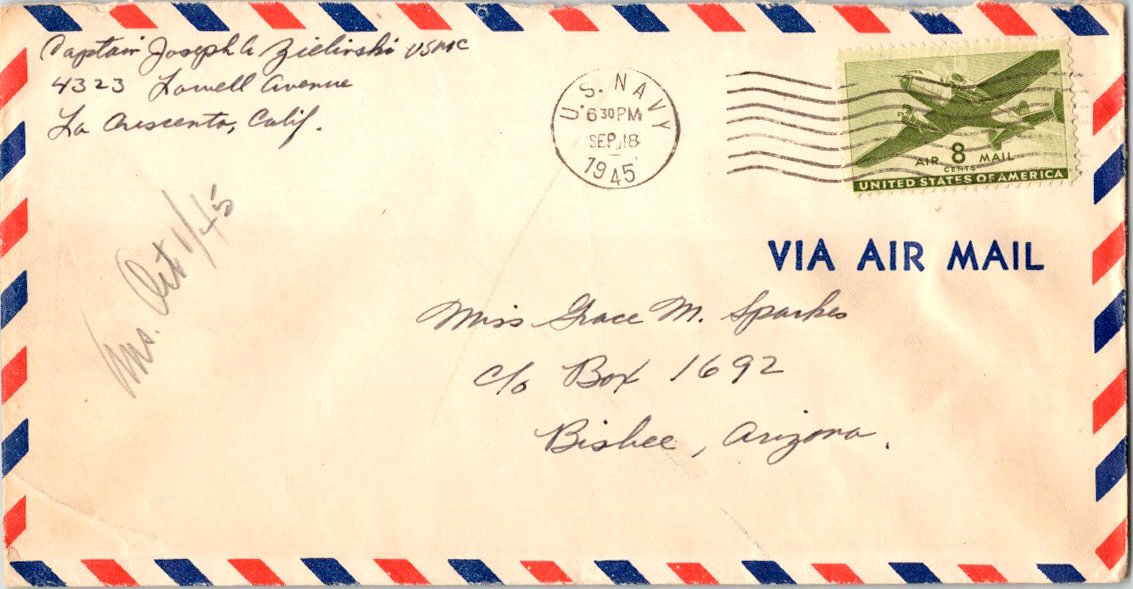 Captain Joseph A Zielinski USMC
4323 Lowell Avenue
La Crescenta, Calif.
U.S. NAVY
6 30 PM
SEP 18
1945
AIR 8 MAIL
CENTS
UNITED STATES OF AMERICA
VIA AIR MAIL
Ans. Oct 1/45
Miss Grace M. Sparkes
c/o Box 1692
Bisbee, Arizona.